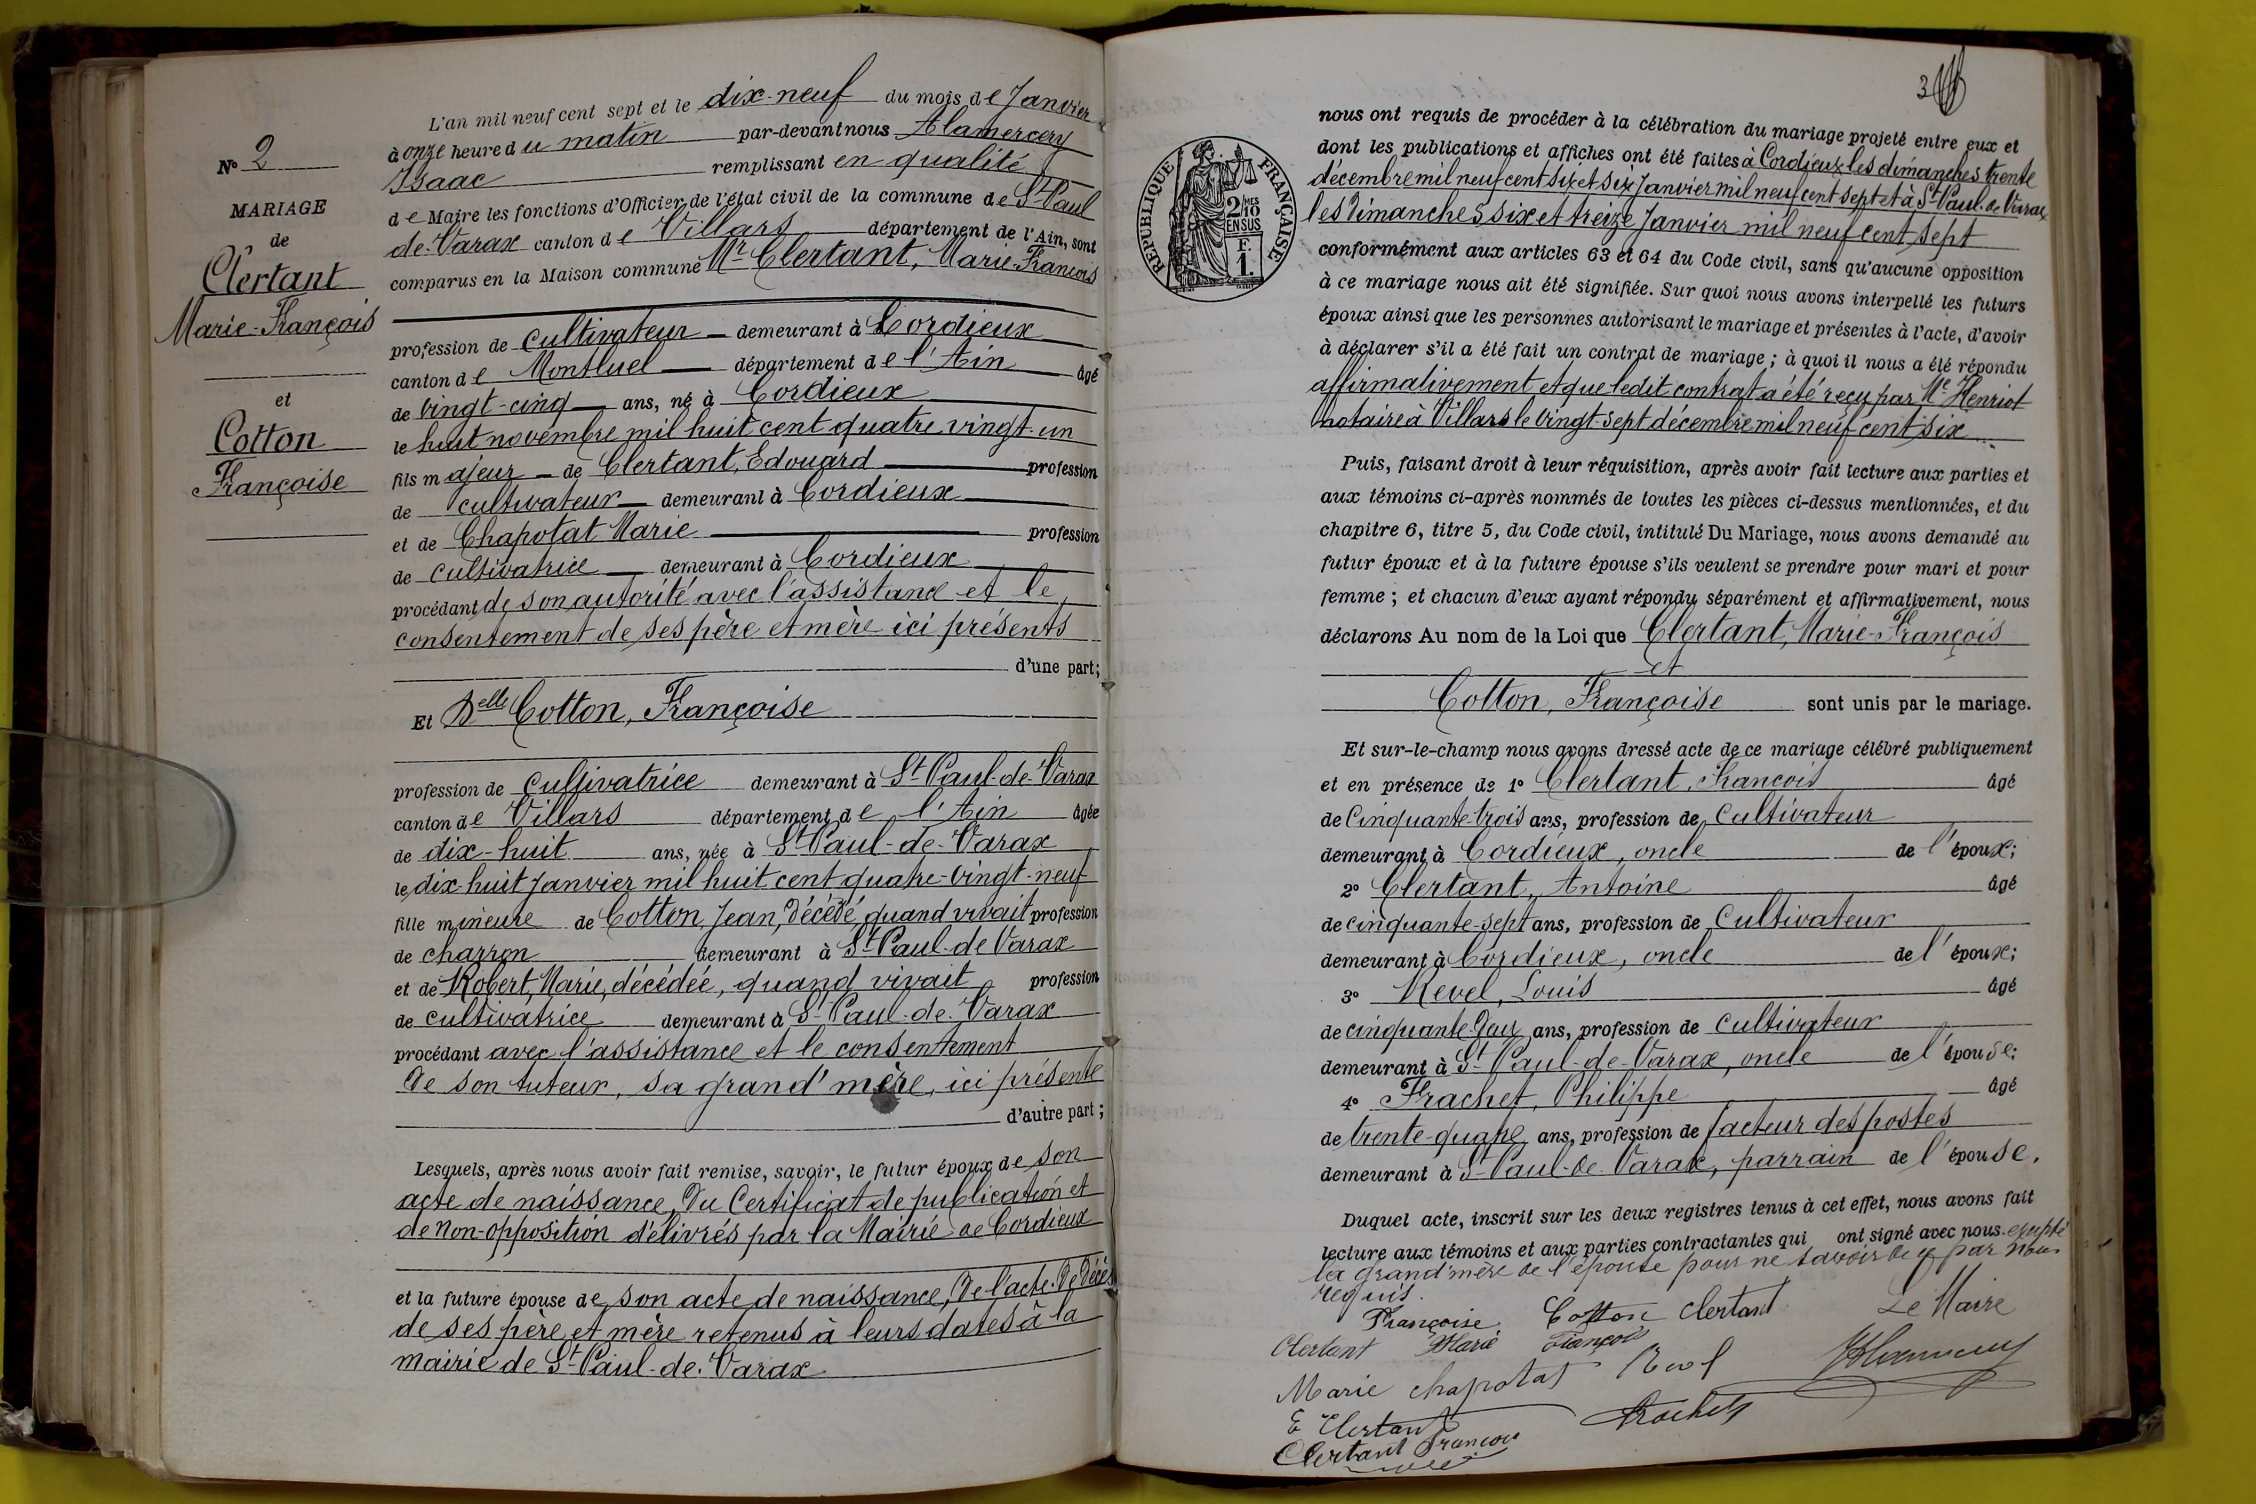 N° 2
MARIAGE
de
Clertant
Marie-François
et
Cotton
Françoise
L'an mil neuf cent sept et le dix-neuf du mois de Janvier
à onze heure du matin par-devant nous Alamercery
Isaac remplissant en qualité
de Maire les fonctions d'Officier de l'état civil de la commune de St Paul
de-Varax canton de Villars département de l'Ain, sont
comparus en la Maison commune Mr Clertant, Marie-François
profession de cultivateur demeurant à Cordieux
canton de Montluel département de l'Ain âgé
de vingt-cinq ans, né à Cordieux
le huit novembre mil huit cent quatre vingt-un
fils majeur de Clertant, Edouard profession
de cultivateur demeurant à Cordieux
et de Chapotat Marie profession
de cultivatrice demeurant à Cordieux
procédant de son autorité avec l'assistance et le
consentement de ses père et mère ici présents
d'une part;
Et Delle Cotton, Françoise
profession de cultivatrice demeurant à St Paul-de-Varax
canton de Villars département de l'Ain âgée
de dix-huit ans, née à St Paul-de-Varax
le dix-huit Janvier mil huit cent quatre-vingt-neuf
fille mineure de Cotton, Jean, décédé, quand vivait profession
de charron demeurant à St Paul-de Varax
et de Robert, Marie, décédée, quand vivait profession
de cultivatrice demeurant à St Paul-de-Varax
procédant avec l'assistance et le consentement
de son tuteur, sa grand'mère, ici présente
d'autre part;
Lesquels, après nous avoir fait remise, savoir, le futur époux de son
acte de naissance, du Certificat de publication et
de non-opposition délivrés par la Mairie de Cordieux
et la future épouse de son acte de naissance, de l'acte de décès
de ses père et mère retenus à leurs dates à la
mairie de St Paul-de-Varax
3
RÉPUBLIQUE FRANÇAISE
2/10 MES
EN SUS
F.
1.
nous ont requis de procéder à la célébration du mariage projeté entre eux et
dont les publications et affiches ont été faites à Cordieux les dimanches trente
décembre mil neuf cent six et six Janvier mil neuf cent sept et à St Paul-de Varax
les dimanches six et treize Janvier mil neuf cent sept
conformément aux articles 63 et 64 du Code civil, sans qu'aucune opposition
à ce mariage nous ait été signifiée. Sur quoi nous avons interpellé les futurs
époux ainsi que les personnes autorisant le mariage et présentes à l'acte, d'avoir
à déclarer s'il a été fait un contrat de mariage; à quoi il nous a été répondu
affirmativement et que ledit contrat a été reçu par Me Henriot
notaire à Villars le vingt-sept décembre mil neuf cent six
Puis, faisant droit à leur réquisition, après avoir fait lecture aux parties et
aux témoins ci-après nommés de toutes les pièces ci-dessus mentionnées, et du
chapitre 6, titre 5, du Code civil, intitulé Du Mariage, nous avons demandé au
futur époux et à la future épouse s'ils veulent se prendre pour mari et pour
femme; et chacun d'eux ayant répondu séparément et affirmativement, nous
déclarons Au nom de la Loi que Clertant, Marie-François
et
Cotton, Françoise sont unis par le mariage.
Et sur-le-champ nous avons dressé acte de ce mariage célébré publiquement
et en présence de 1° Clertant, François âgé
de Cinquante trois ans, profession de cultivateur
demeurant à Cordieux, oncle de l'époux;
2° Clertant, Antoine âgé
de cinquante-sept ans, profession de cultivateur
demeurant à Cordieux, oncle de l'époux;
3° Revel, Louis âgé
de cinquante-deux ans, profession de cultivateur
demeurant à St Paul-de-Varax, oncle de l'épouse;
4° Frachet, Philippe âgé
de trente-quatre ans, profession de facteur des postes
demeurant à St Paul-de-Varax, parrain de l'épouse.
Duquel acte, inscrit sur les deux registres tenus à cet effet, nous avons fait
lecture aux témoins et aux parties contractantes qui ont signé avec nous excepté
la grand'mère de l'épouse pour ne savoir de ce par nous
requis.
Françoise Cotton Clertant Le Maire
Clertant Marie François
Marie chapotat Revel
E Clertant Frachet
Clertant François